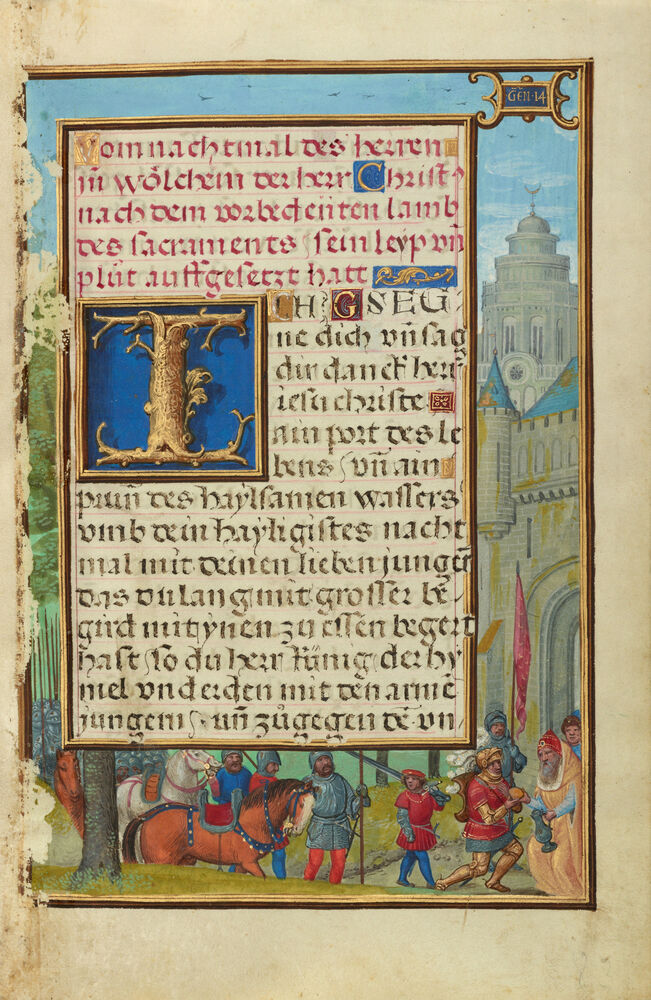 GEN·14
Vom nachtmal des herren
in wölchem der herr Christꝰ
nach dem vorbedeuten lamb
des sacraments / sein leyp vn̄
plůt auffgesetzt hatt
ICH GSEG
ne dich vn̄ sag
dir danck herr
iesu christe
ain port des le
bens / vn̄ ain
prun̄ des haylsamen wassers
vmb dein hayligistes nacht
mal mit deinen lieben jungen̄
das du lang mit grosser be
gird mit ynen zu essen begert
hast / so du herr Künig der hy
mel vnd erden mit den armē
jungern / vn̄ zůgegen dē vn